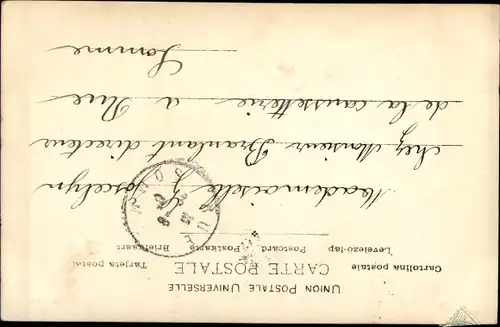 UNION POSTALE UNIVERSELLE
CARTE POSTALE
Cartolina postale Tarjeta postal
Levelező-lap Postcard Postkarte Briefkaart
Mademoiselle Y. Jocelyn
chez Monsieur Branlant directeur
de la causetterie à Rue
Somme